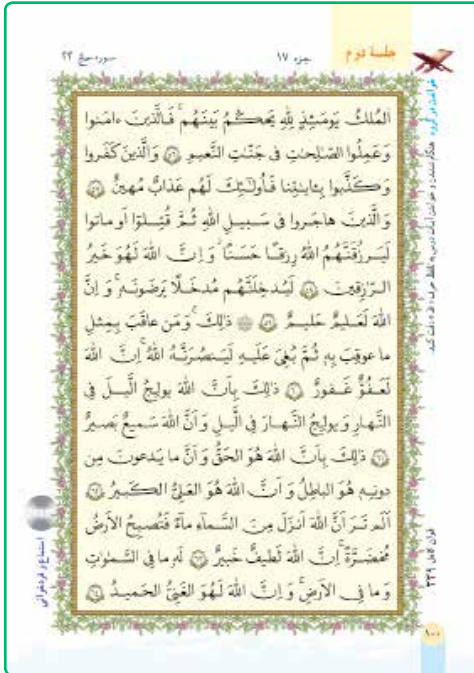 جلسهٔ دوم
جزء ۱۷
سوره‌حج ۲۲
اَلمُلكُ يَومَئِذٍ لِلّٰهِ يَحكُمُ بَينَهُم فَالَّذينَ ءامَنوا
وَ عَمِلُوا الصّٰلِحٰتِ فى جَنّٰتِ النَّعيمِ ﴿٥٦﴾ وَ الَّذينَ كَفَروا
وَ كَذَّبوا بِـٔايٰتِنا فَاُولٰئِكَ لَهُم عَذابٌ مُهينٌ ﴿٥٧﴾
وَ الَّذينَ هاجَروا فى سَبيلِ اللّٰهِ ثُمَّ قُتِلوا اَو ماتوا
لَيَرزُقَنَّهُمُ اللّٰهُ رِزقًا حَسَنًا وَ اِنَّ اللّٰهَ لَهُوَ خَيرُ
الرّٰزِقينَ ﴿٥٨﴾ لَيُدخِلَنَّهُم مُدخَلًا يَرضَونَهٗ وَ اِنَّ
اللّٰهَ لَعَليمٌ حَليمٌ ﴿٥٩﴾ ذٰلِكَ وَ مَن عاقَبَ بِمِثلِ
ما عوقِبَ بِهٖ ثُمَّ بُغِىَ عَلَيهِ لَيَنصُرَنَّهُ اللّٰهُ اِنَّ اللّٰهَ
لَعَفُوٌّ غَفورٌ ﴿٦٠﴾ ذٰلِكَ بِاَنَّ اللّٰهَ يولِجُ الَّيلَ فِى
النَّهارِ وَ يولِجُ النَّهارَ فِى الَّيلِ وَ اَنَّ اللّٰهَ سَميعٌ بَصيرٌ
﴿٦١﴾ ذٰلِكَ بِاَنَّ اللّٰهَ هُوَ الحَقُّ وَ اَنَّ ما يَدعونَ مِن
دونِهٖ هُوَ الباطِلُ وَ اَنَّ اللّٰهَ هُوَ العَلِىُّ الكَبيرُ ﴿٦٢﴾
اَلَم تَرَ اَنَّ اللّٰهَ اَنزَلَ مِنَ السَّماءِ ماءً فَتُصبِحُ الاَرضُ
مُخضَرَّةً اِنَّ اللّٰهَ لَطيفٌ خَبيرٌ ﴿٦٣﴾ لَهٗ ما فِى السَّمٰوٰتِ
وَ ما فِى الاَرضِ وَ اِنَّ اللّٰهَ لَهُوَ الغَنِىُّ الحَميدُ ﴿٦٤﴾
استماع و فردخوانی
قرآن کامل ۳۳۹
۱۰۰